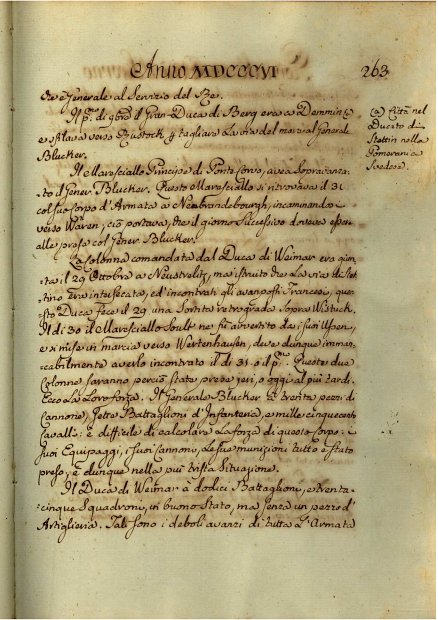 Anno MDCCCVI
263
tre Generale al Servizio del Re.
Il p.mo di 9bre il Gran-Duca di Berg era a Demmin (a)
e stava verso Rustock p tagliare la via del mare al Generale
Blucker.
(a) Città nel
Ducato di
Stettin nella
Pomerania
Svedese.
Il Maresciallo Principe di Ponte-Corvo, avea sopravanza-
to il Gener. Blucker. Questo Maresciallo si ritrovava il 31
col suo corpo d'Armata a Neubrandebourgh, incaminando
verso Waren, ciò portava, che il giorno successivo doveva esser
alle prese col Gener. Blucker.
La colonna comandata dal Duca di Weimar era giun-
ta il 29 Ottobre a Neustrelitz, ma istruito che la via di Stet-
tino era intersecata, ed incontrati gli avanposti Francesi, que-
sto Duca fece il 29 una sortita retrograda sopra Wistuck.
Il dì 30 il Maresciallo Soult ne fù avvertito da i suoi Usseri,
e si mise in marcia verso Wertenhausen, deve dunque imman-
cabilmente averlo incontrato il dì 31 o il p.mo Queste due
Colonne saranno perciò state prese jeri, o oggi al più tardi.
Ecco la Loro forza. Il Generale Blucker à trenta pezzi di
Cannone, sette Battaglioni d'Infanteria, e mille cinquecento
Cavalli: è difficile di calcolare la forza di questo corpo: i
suoi Equipaggi, i suoi cannoni, le sue munizioni tutto è stato
preso, è dunque nella più trista situazione.
Il Duca di Weimar à dodici Battaglioni, e trenta-
cinque Squadroni, in buono stato, ma senza un pezzo d'
Artiglieria. Tali sono i deboli avanzi di tutta l'Armata